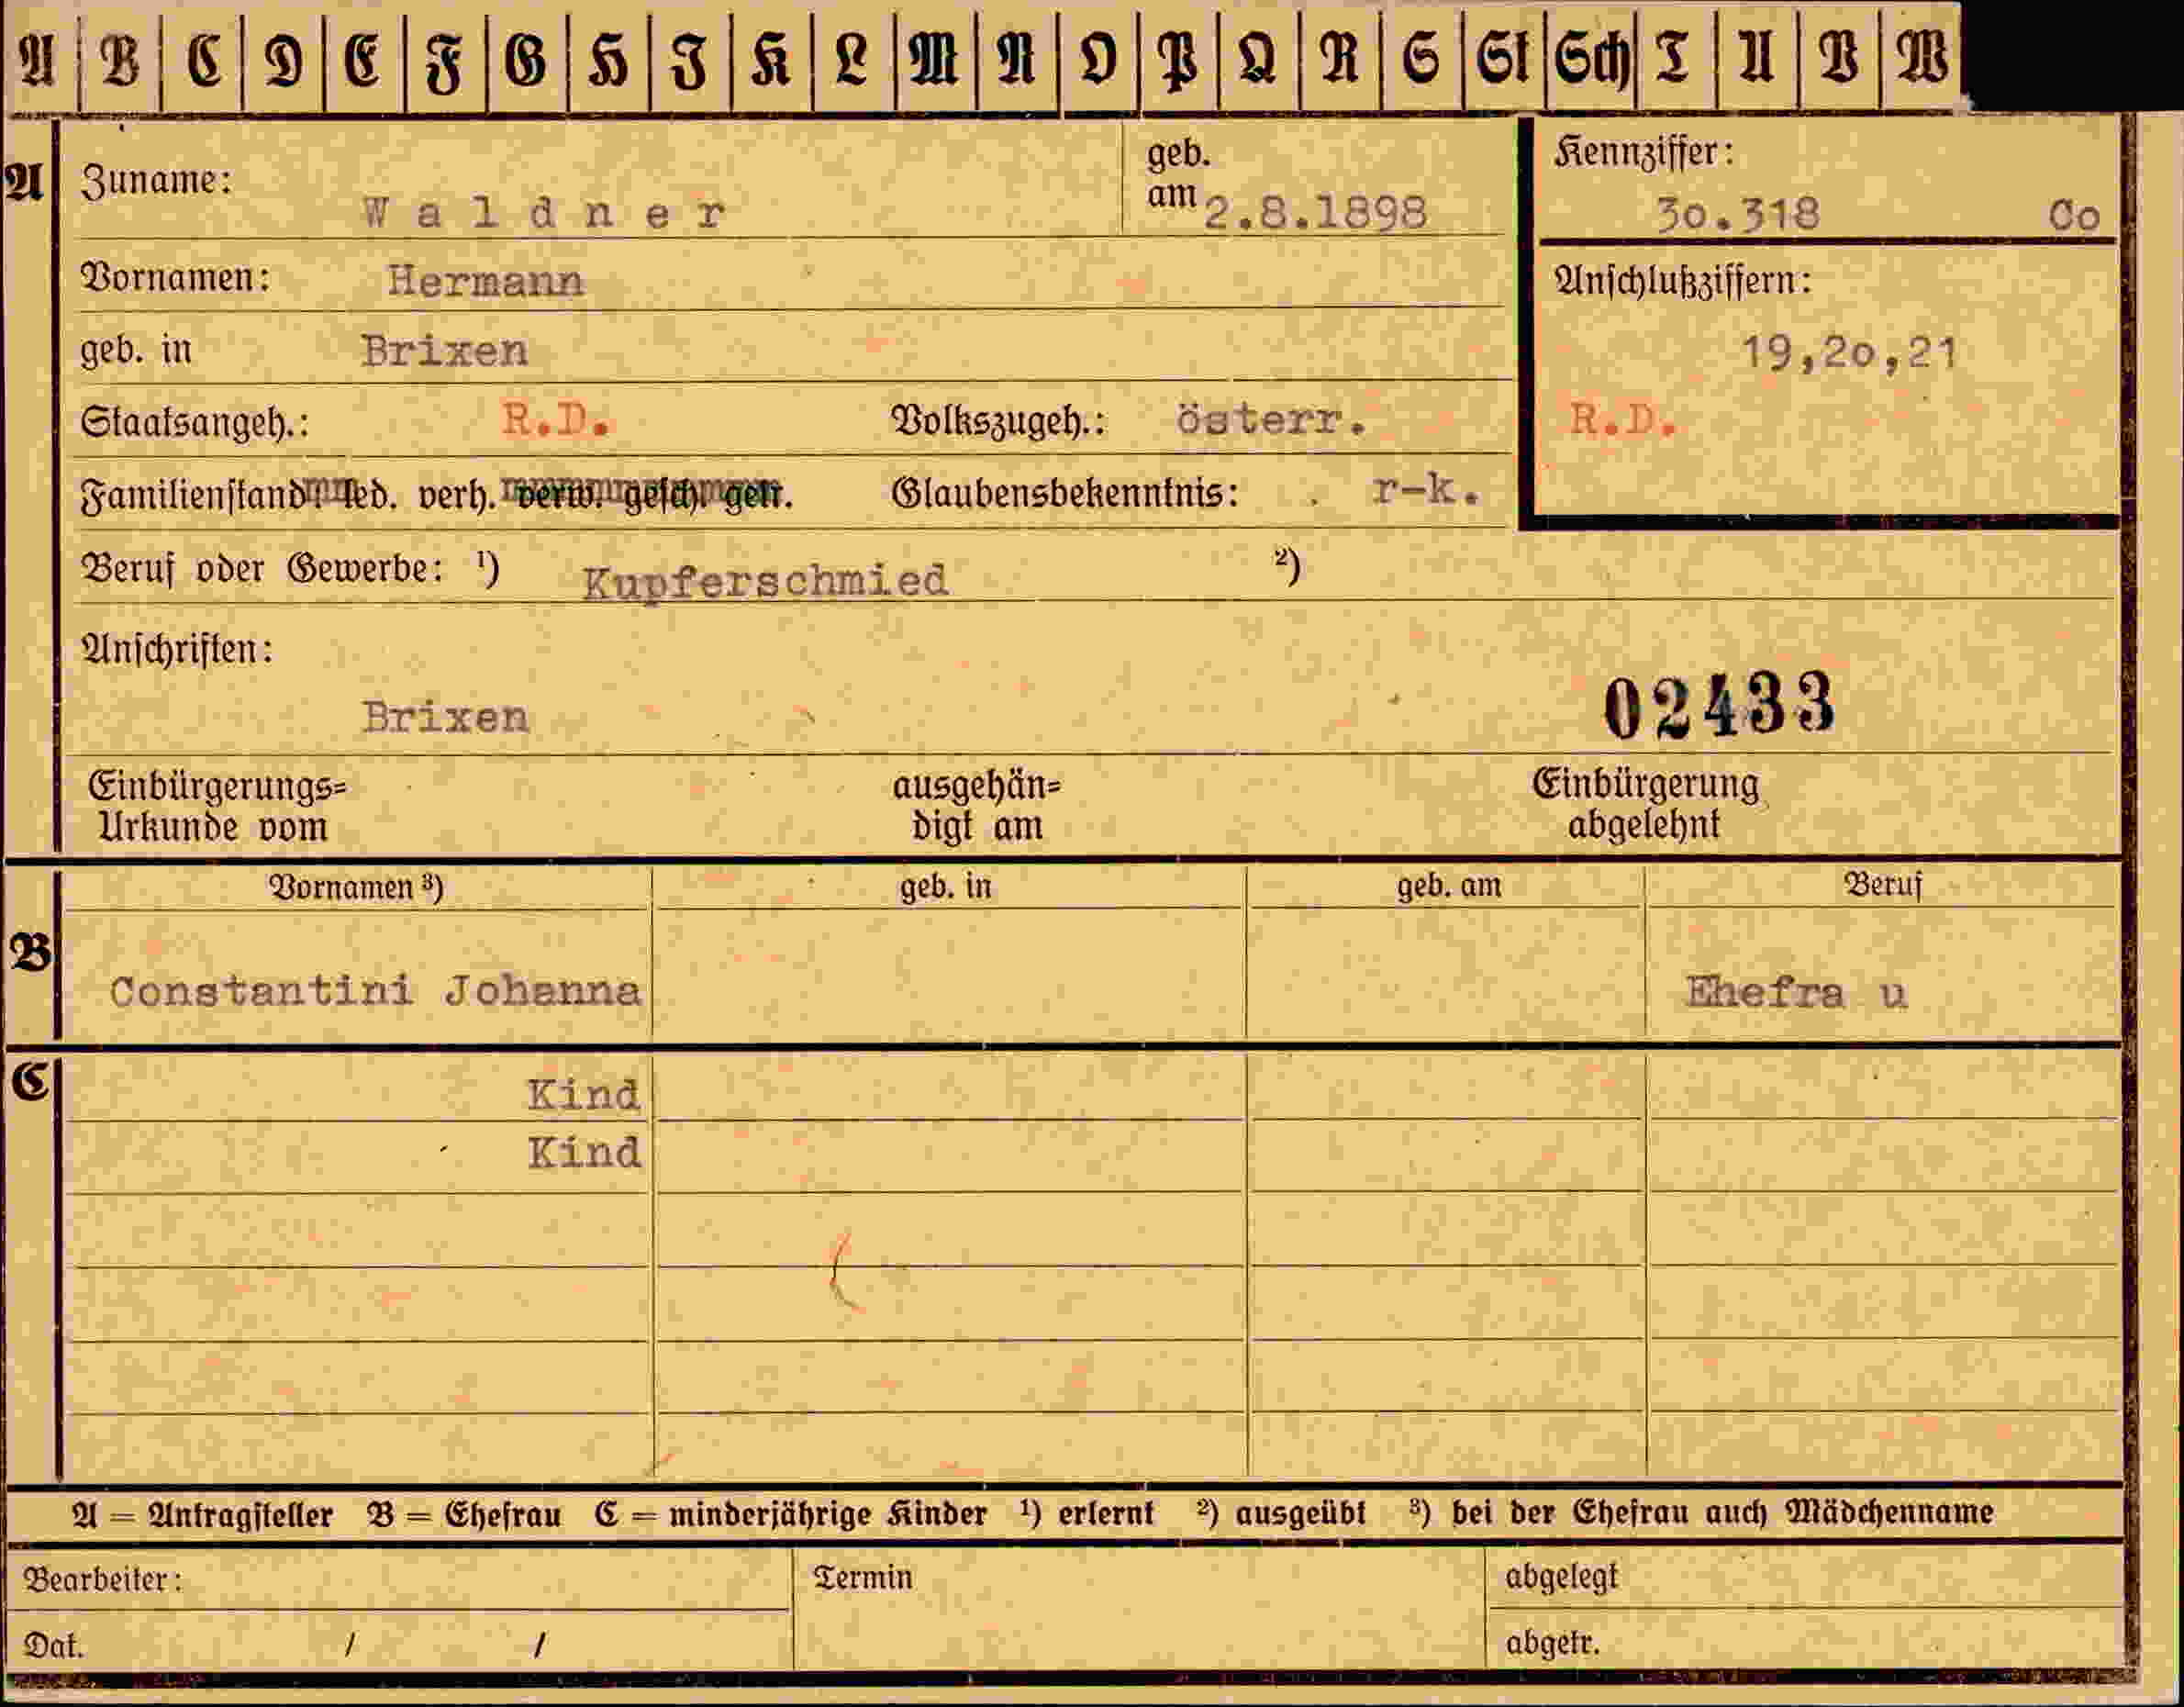 A B C D E F G H I K L M N O P Q R S St Sch T U V W
A
Zuname: Waldner geb. am 2.8.1898
Kennziffer: 30.318 Co
Vornamen: Hermann
Anschlußziffern:
geb. in Brixen
19,2o,21
Staatsangeh.: R.D. Volkszugeh.: österr.
R.D.
Familienstand: led. verh. verw. gesch. getr. Glaubensbekenntnis: r-k.
Beruf oder Gewerbe: ¹) Kupferschmied ²)
Anschriften:
Brixen
02433
Einbürgerungs= Urkunde vom
ausgehän= digt am
Einbürgerung abgelehnt
B
Vornamen ³) geb. in geb. am Beruf
Constantini Johanna Ehefra u
C
Kind
Kind
A = Antragsteller B = Ehefrau C = minderjährige Kinder ¹) erlernt ²) ausgeübt ³) bei der Ehefrau auch Mädchenname
Bearbeiter: Termin abgelegt
Dat. / / abgetr.